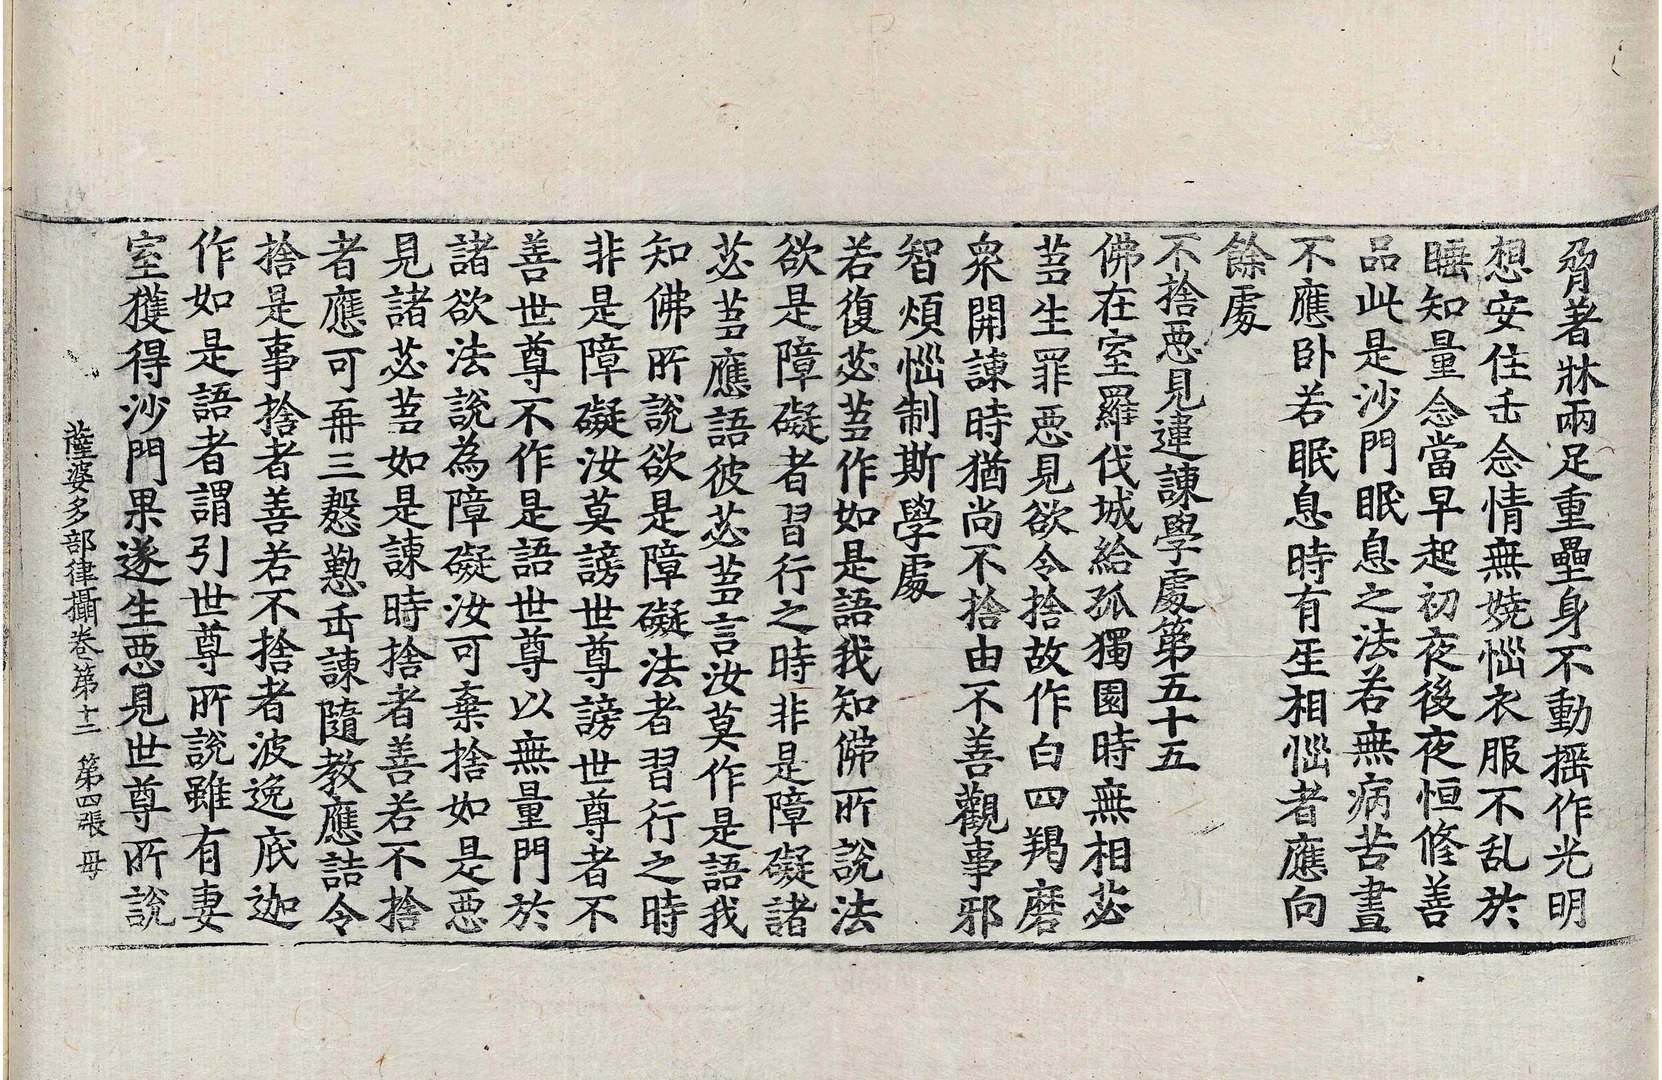 脅著牀兩足重壘身不動摇作光明
想安住正念情無嬈惱衣服不乱於
睡知量念當早起初夜後夜恒修善
品此是沙門眠息之法若無病苦晝
不應卧若眠息時有𤯔相惱者應向
餘處
不捨惡見違諫學處第五十五
佛在室羅伐城給孤獨園時無相苾
蒭生罪惡見欲令捨故作白四羯磨
衆開諫時猶尚不捨由不善觀事邪
智煩惱制斯學處
若復苾蒭作如是語我知佛所說法
欲是障礙者習行之時非是障礙諸
苾蒭應語彼苾蒭言汝莫作是語我
知佛所說欲是障礙法者習行之時
非是障礙汝莫謗世尊謗世尊者不
善世尊不作是語世尊以無量門於
諸欲法說為障礙汝可棄捨如是惡
見諸苾蒭如是諫時捨者善若不捨
者應可再三慇懃正諫隨教應詰令
捨是事捨者善若不捨者波逸底迦
作如是語者謂引世尊所說雖有妻
室獲得沙門果遂生惡見世尊所說
薩婆多部律攝卷第十二 第四張 毋